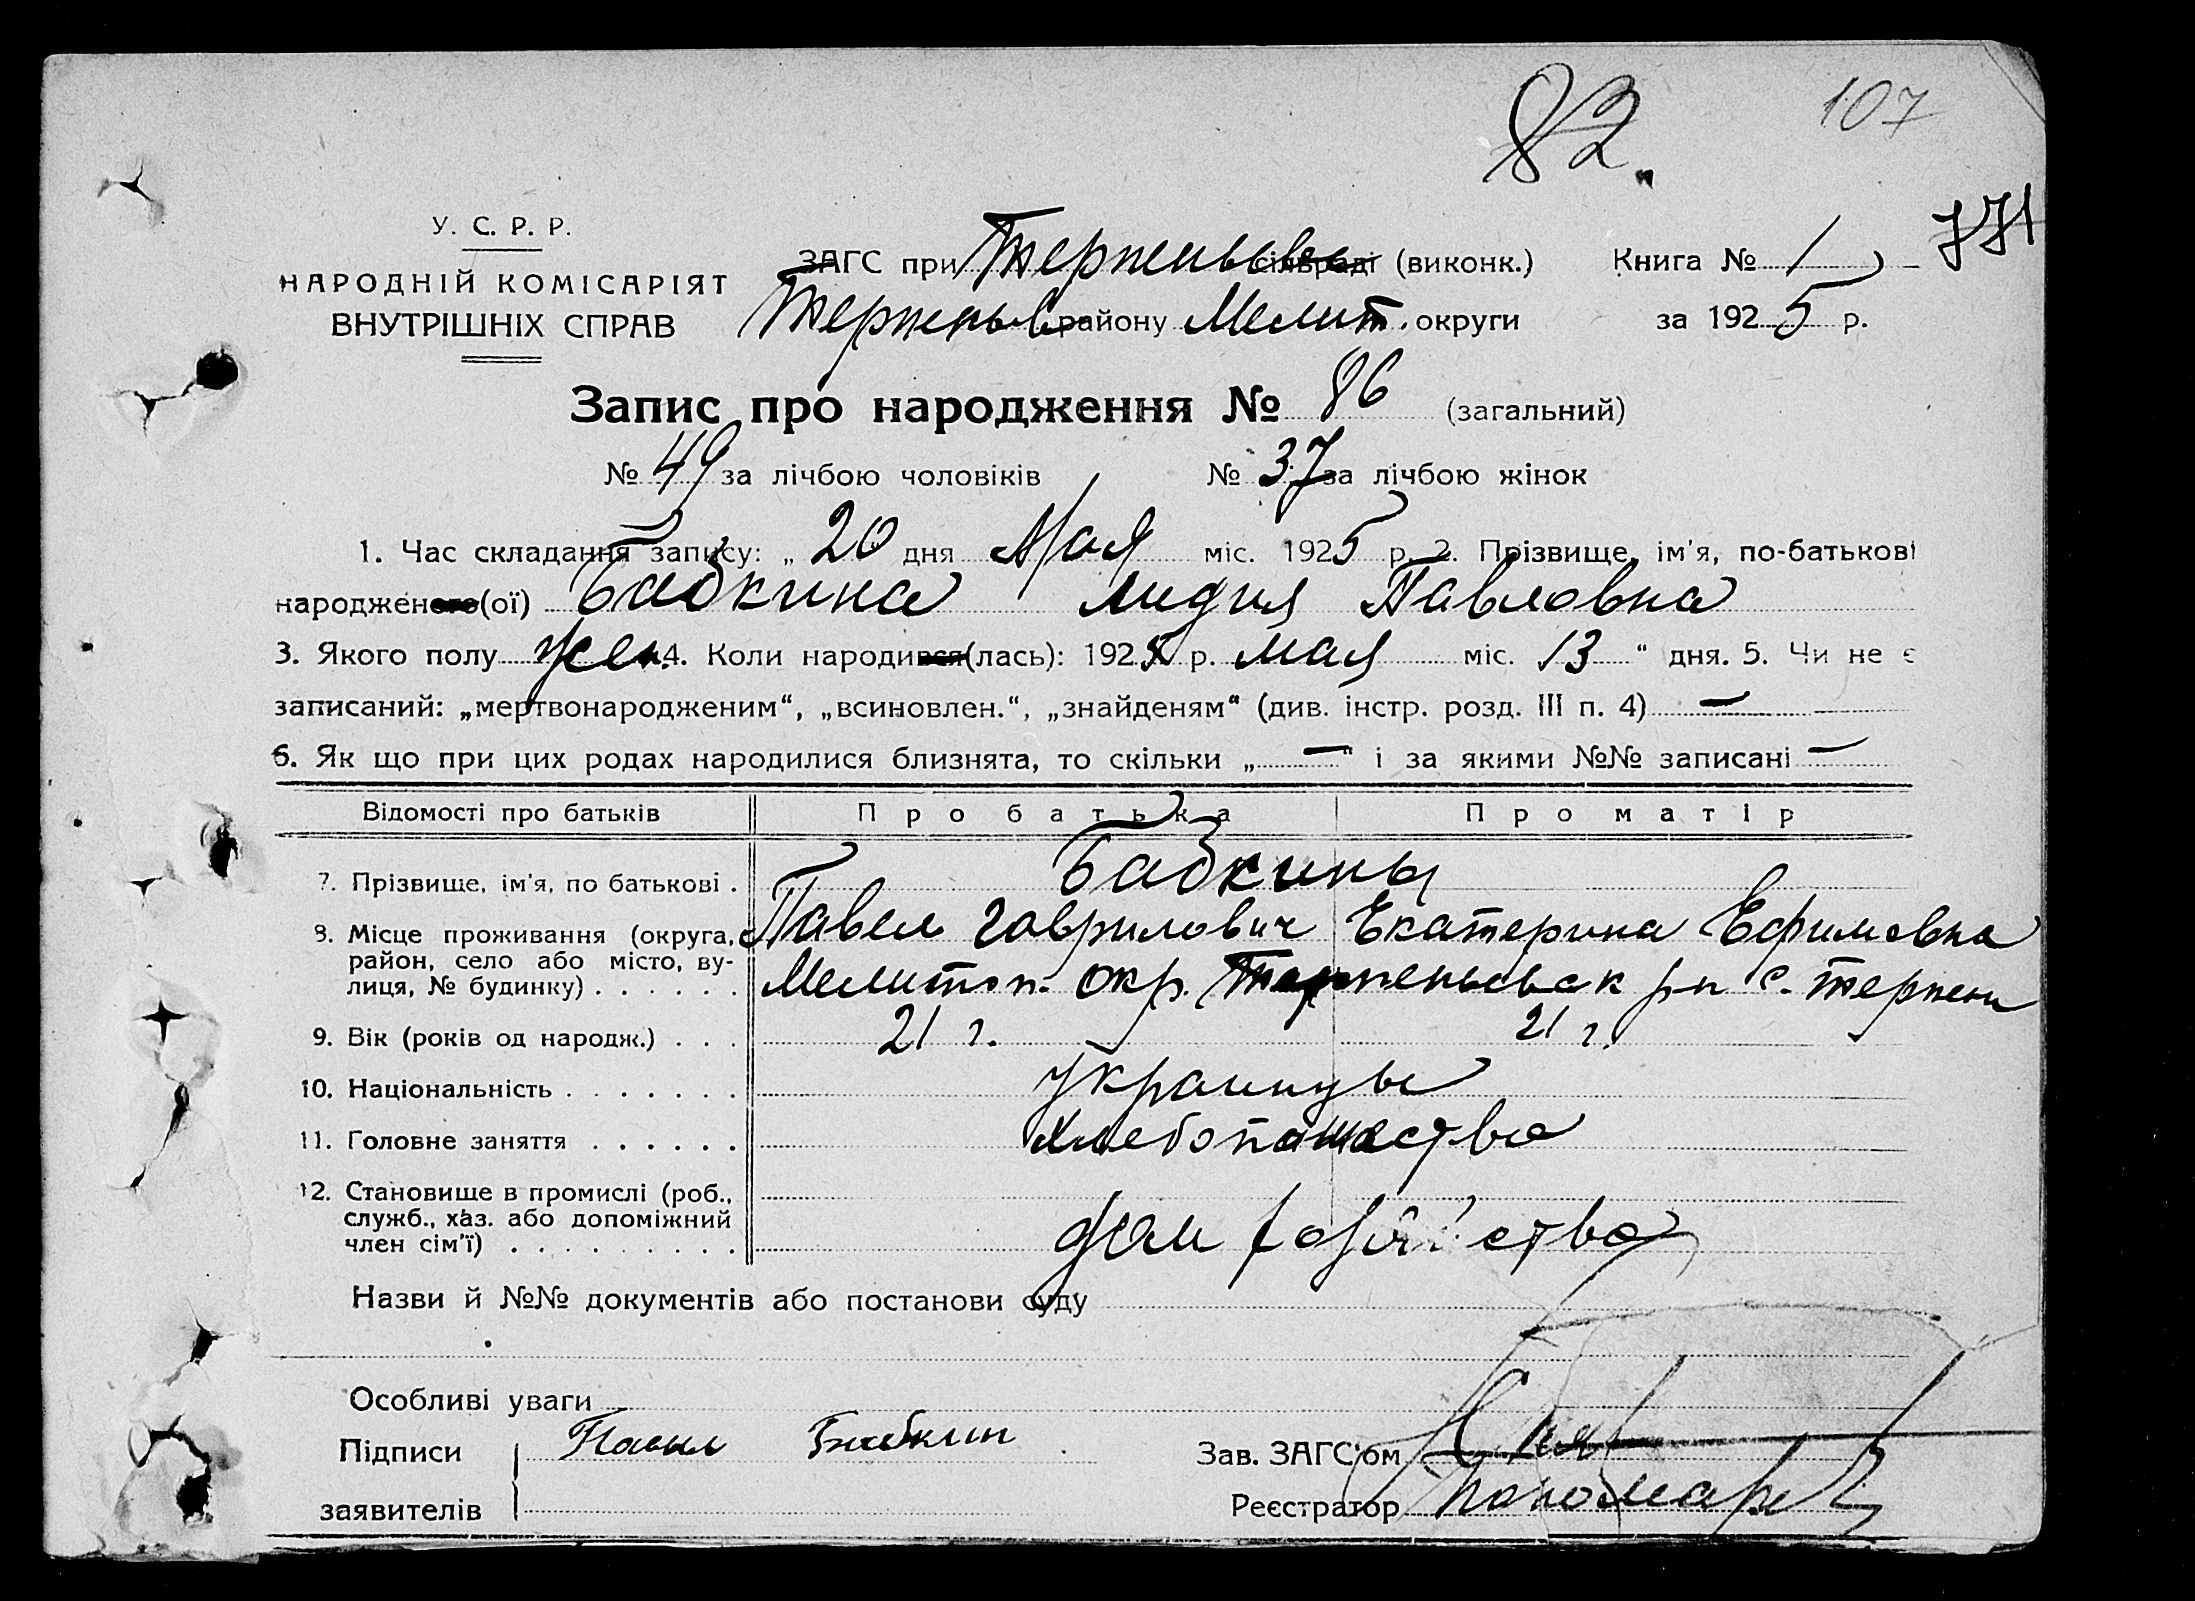 82. 107
771
У. С. Р. Р.
НАРОДНІЙ КОМІСАРІЯТ
ВНУТРІШНІХ СПРАВ
ЗАГС при Терпеньевс сільраді (виконк.) Книга № 1
Терпеньев району Мелит. округи за 1925 р.
Запис про народження № 86 (загальний)
№ 49 за лічбою чоловіків № 37 за лічбою жінок
1. Час складання запису: „ 20 дня Мая міс. 1925 р. 2. Прізвище, ім'я, по-батькові
народженого(ої) Бабкина Лидия Павловна
3. Якого полу жен. 4. Коли народився(лась): 1925 р. мая міс. 13 “ дня. 5. Чи не є
записаний: „мертвонародженим“, „всиновлен.“, „знайденям“ (див. інстр. розд. III п. 4) —
6. Як що при цих родах народилися близнята, то скільки „ — “ і за якими №№ записані —
Відомості про батьків Про батька Про матір
7. Прізвище, ім'я, по батькові . Бабкины
8. Місце проживання (округа, Павел Гаврилович Екатерина Ефимовна
район, село або місто, ву-
лиця, № будинку) . . . . . . Мелитоп. окр. Терпеньевск р-н с. Терпени
9. Вік (років од народж.) . . . 21 г. 21 г.
10. Національність . . . . . . . украинцы
11. Головне заняття . . . . . . Хлебопашество
12. Становище в промислі (роб.,
служб., хаз. або допоміжний
член сім'ї) . . . . . . . . . дом хозяйство
Назви й №№ документів або постанови суду
Особливі уваги
Підписи Павел Бабкин Зав. ЗАГС'ом
заявителів Реєстратор Пономар